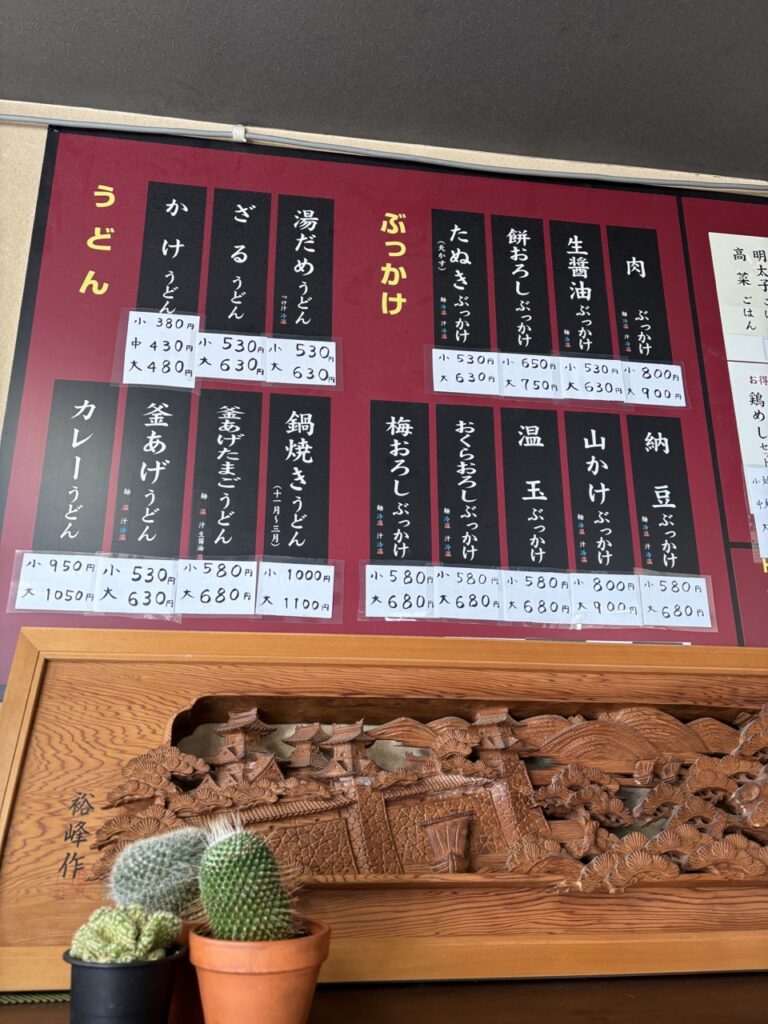 うどん
かけうどん
小 380円
中 430円
大 480円
ざるうどん
小 530円
大 630円
湯だめうどん
つけ汁 冷 温
小 530円
大 630円
カレーうどん
小 950円
大 1050円
釜あげうどん
麺 温 汁 冷 温
小 530円
大 630円
釜あげたまごうどん
麺 温 汁 生醤油 温
小 580円
大 680円
鍋焼きうどん
(十一月~三月)
小 1000円
大 1100円
ぶっかけ
たぬきぶっかけ
(天かす)
麺 冷 温 汁 冷 温
小 530円
大 630円
餅おろしぶっかけ
小 650円
大 750円
生醤油ぶっかけ
麺 冷 温
小 530円
大 630円
肉ぶっかけ
麺 冷 温 汁 冷 温
小 800円
大 900円
梅おろしぶっかけ
麺 冷 温 汁 冷 温
小 580円
大 680円
おくらおろしぶっかけ
麺 冷 温 汁 冷 温
小 580円
大 680円
温玉ぶっかけ
小 580円
大 680円
山かけぶっかけ
麺 冷 温 汁 冷 温
小 800円
大 900円
納豆ぶっかけ
麺 冷 温 汁 冷 温
小 580円
大 680円
明太子ごはん
高菜ごはん
鶏めしセット
裕峰作